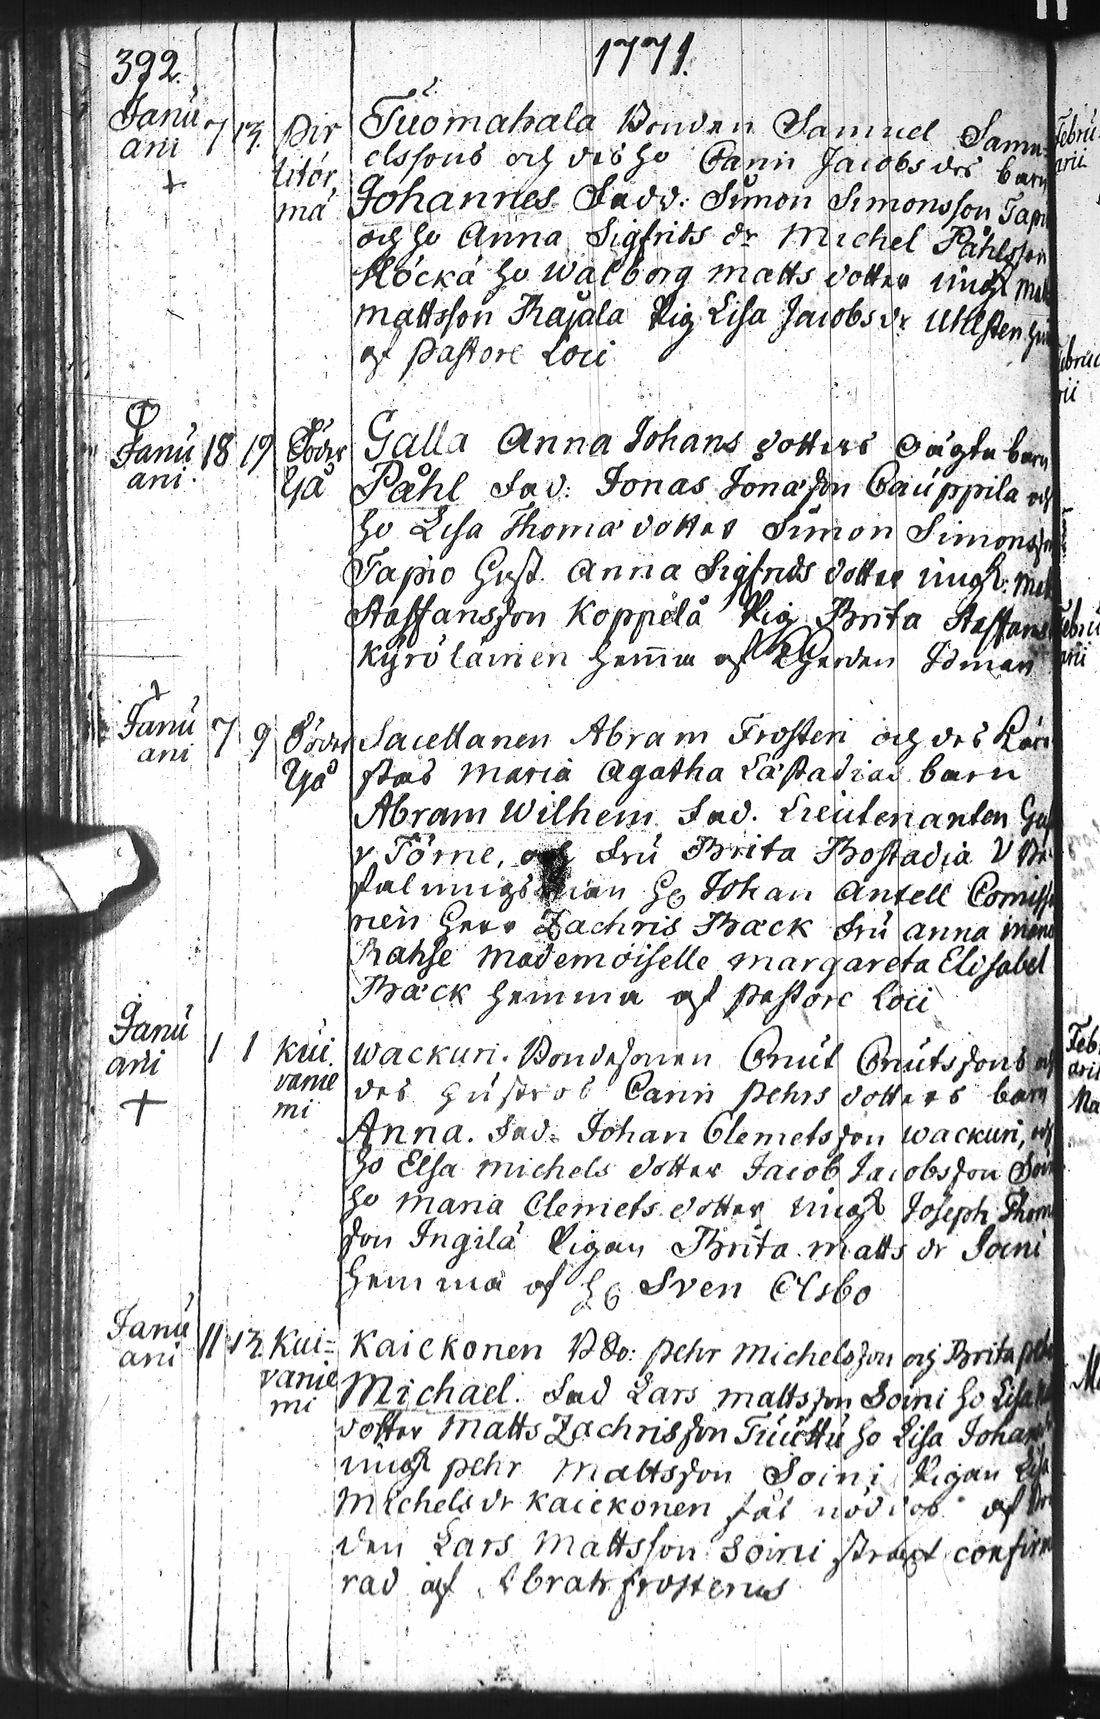 392. 1771.
Janu
ari 7 13. Pir
titör
mä
Tuomahala Bonden Samuel Samu-
elssons och des ho Carin Jacobs des barn
Johannes Fadd: Simon Simonsson Tapi
och ho Anna Sigfrids dr Michel Påhlsson
Klöcka ho Walborg Matts dotter ungk Mat
Mattsson Rajala Pig Lisa Jacobs dr Uhlsten
af Pastore Loci
Janu 18 19 Söder
ari Yå
Galla Anna Johans dotters oägta barn
Påhl Fad: Jonas Jonasson Cauppila och
ho Lisa Thoma dotter Simon Simonsson
Tapio Hust. Anna Sigfrids dotter ungk: Mat
Staffansson Koppelå Pig Brita Staffans
Kyröläinen hemma af Idman
Janu 7 9 Söder
ari Yå
Sacellanen Abram Frosteri och des Kära-
stas Maria Agatha Læstadiae barn
Abram Wilhem Fad. Lieutenanten Gust
v Törne, och Fru Brita Bostadia V Be-
falningsman Hr Johan Antell Comiss
rien Herr Zachris Back Fru Anna
Rahse Mademoiselle Margareta Elisabet
Back hemma af Pastore Loci
Janu
ari 1 1 Kui
vanie
mi
Wackuri. Bondesonen Cnut Cnutssons och
des hustros Carin Pehrs dotters barn
Anna. Fad: Johan Clemetsson Wackuri, och
ho Elsa Michels dotter Jacob Jacobsson
ho Maria Clemets dotter ungk Joseph Thom
son Ingilä Pigan Brita Matts dr Soini
hemma af Hr Sven Osbo
Janu 11 13. Kui=
ari vanie
mi
Kaickonen Bdo: Pehr Michelsson och Brita
Michael. Fad Lars Mattsson Soini ho Lisa
dotter Matts Zachrisson Tuuttu ho Lisa Johans
ungk Pehr Mattsson Soini Pigan Lisa
Michels dr Kaickonen fåt nöddop af
den Lars Mattsson Soini strax confirm
rad af Abrah Frosterus